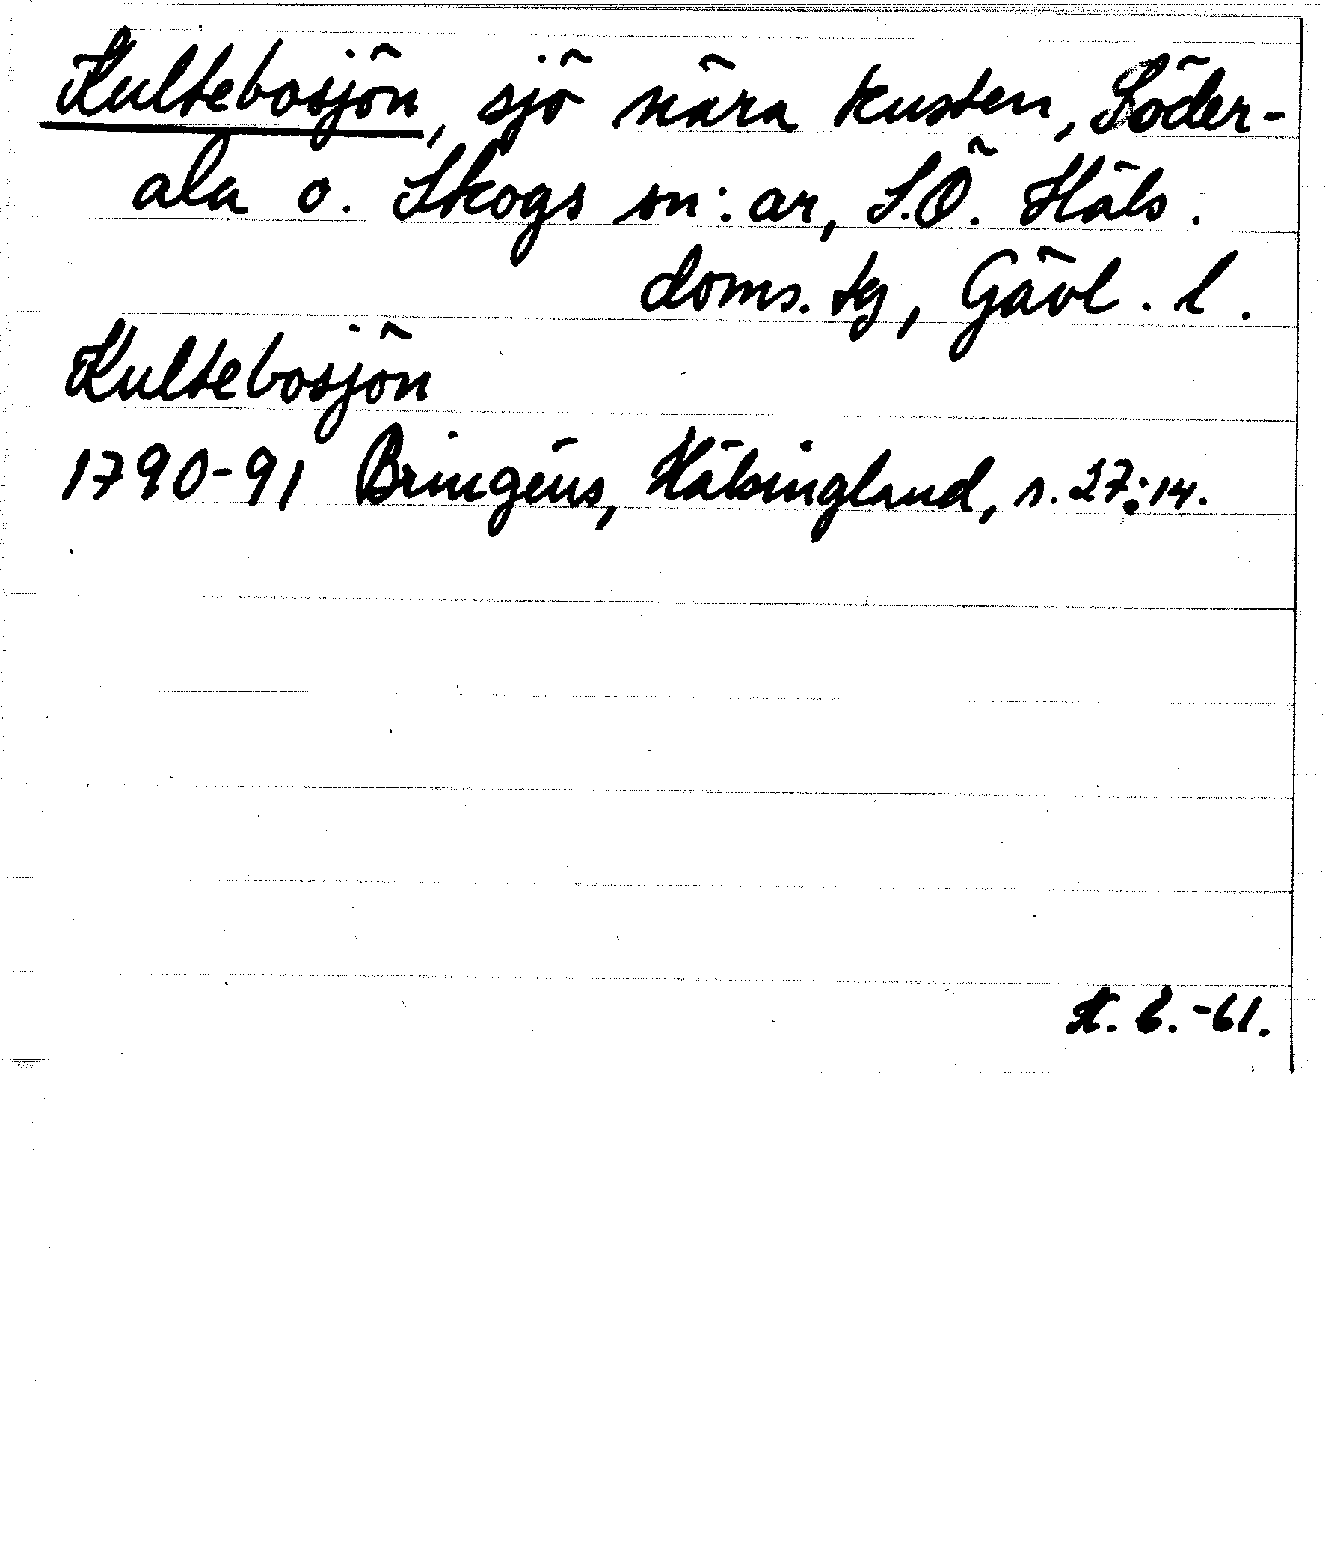 Kultebosjön, sjö nära kusten, Söder-
ala o. Skogs sn:ar, S.Ö. Häls.
doms. tg, Gävl. l.
Kultebosjön
1790-91 Bringéus, Hälsingland, s. 27:14.
-61.